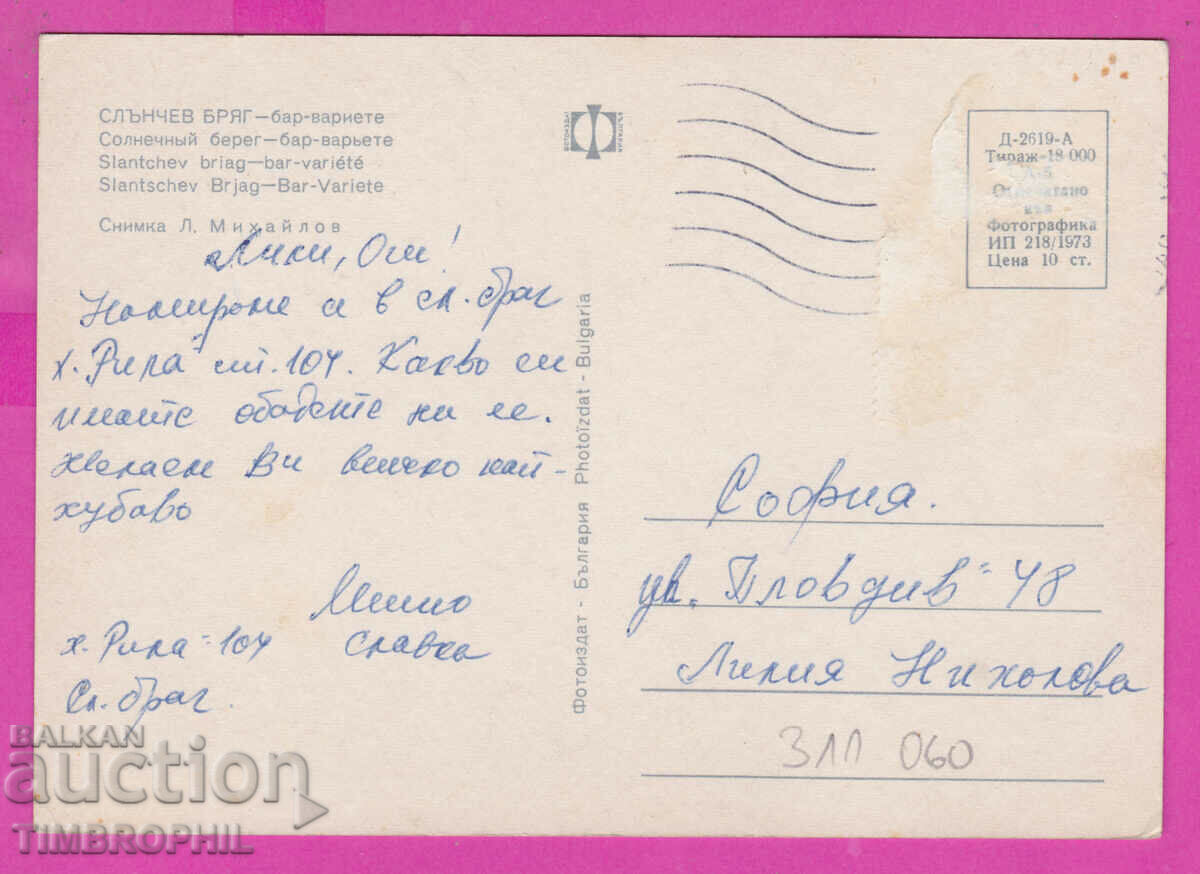 СЛЪНЧЕВ БРЯГ—бар-вариете
Солнечный берег—бар-варьете
Slantchev briag—bar-variété
Slantschev Brjag—Bar-Variete
Снимка Л. Михайлов
ФОТОИЗДАТ
БЪЛГАРИЯ
Д-2619-А
Тираж-18 000
Отпечатано
във
Фотографика
ИП 218/1973
Цена 10 ст.
Лили, Оги!
Намираме се в сл. бряг
х. "Рила" ст. 104. Какво си
имате обадете ни се.
Желаем Ви всичко най-
хубаво
Мишо
Славка
х. Рила" - 104
Сл. бряг.
Фотоиздат - България Photoïzdat - Bulgaria
София.
ул. "Пловдив" 48
Лилия Николова
311 060
BALKAN
auction
TIMBROPHIL